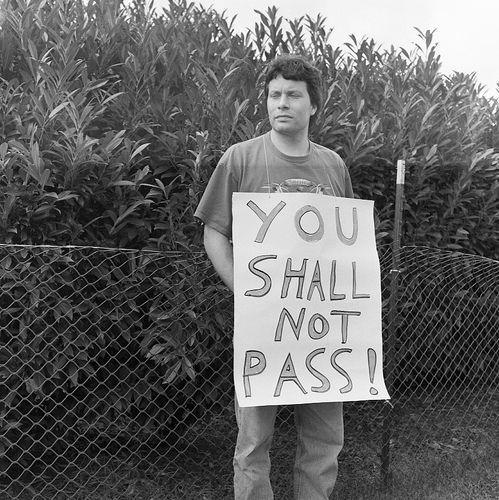 YOU
SHALL
NOT
PASS!